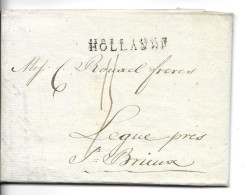 HOLLANDE
Mess. C. Rouxel freres
Legué près
St. Brieux